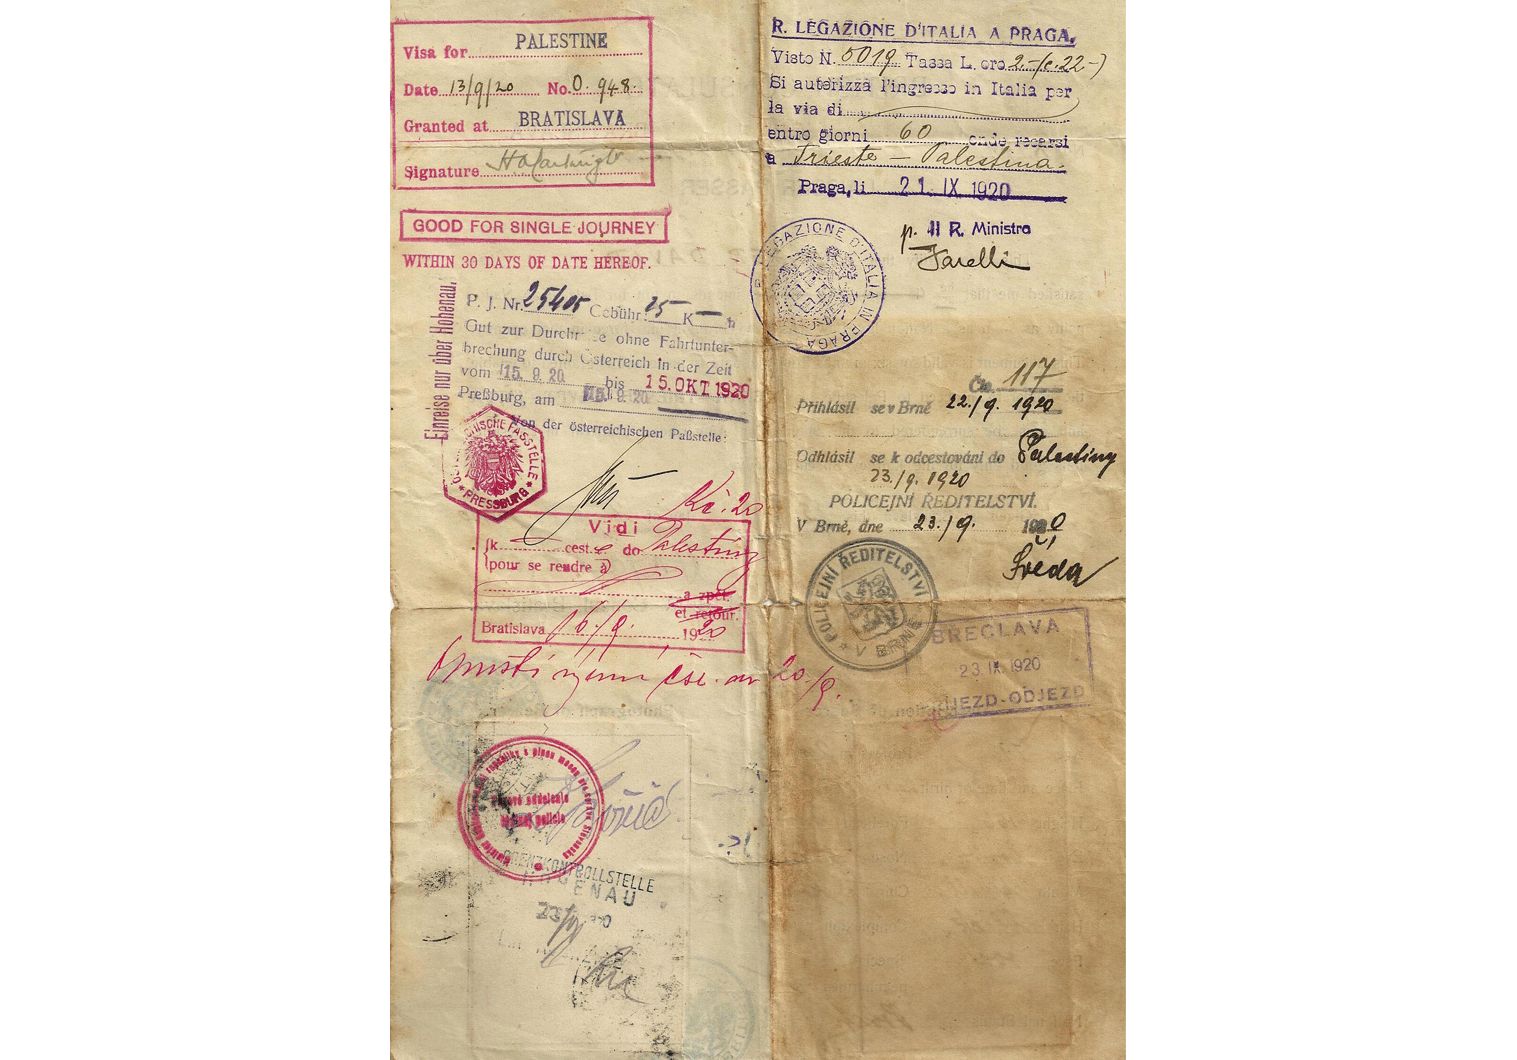 Visa for PALESTINE
Date 13/9/20 No. 0.948.
Granted at BRATISLAVA
Signature
GOOD FOR SINGLE JOURNEY
WITHIN 30 DAYS OF DATE HEREOF.
Einreise nur über Hohenau.
P. J. Nr. 25405 Gebühr: 25 K — h
Gut zur Durchreise ohne Fahrtunter-
brechung durch Österreich in der Zeit
vom 15. 9. 20 bis 15. OKT 1920
Preßburg, am 15. 9. 20
Von der österreichischen Paßstelle:
ÖSTERREICHISCHE PASSTELLE
* PRESSBURG *
Kč. 20
Vidi
k cest. do Palestiny
pour se rendre à
a zpět.
et retour.
Bratislava 16./9. 1920
20/9.
GRENZKONTROLLSTELLE
HOHENAU
R. LEGAZIONE D'ITALIA A PRAGA.
Visto N. 5019 Tassa L. oro 2.-(c.22-)
Si autorizza l'ingresso in Italia per
la via di
entro giorni 60 onde recarsi
a Trieste — Palestina.
Praga, li 21. IX 1920
p. Il R. Ministro
R. LEGAZIONE D'ITALIA IN PRAGA
Čís. 117
Přihlásil se v Brně 22./9. 1920
Odhlásil se k odcestování do Palestiny
23./9. 1920
POLICEJNÍ ŘEDITELSTVÍ.
V Brně, dne 23./9. 1920
Švéda
POLICEJNÍ ŘEDITELSTVÍ
* V BRNĚ *
BŘECLAVA
23. IX. 1920
PŘÍJEZD-ODJEZD